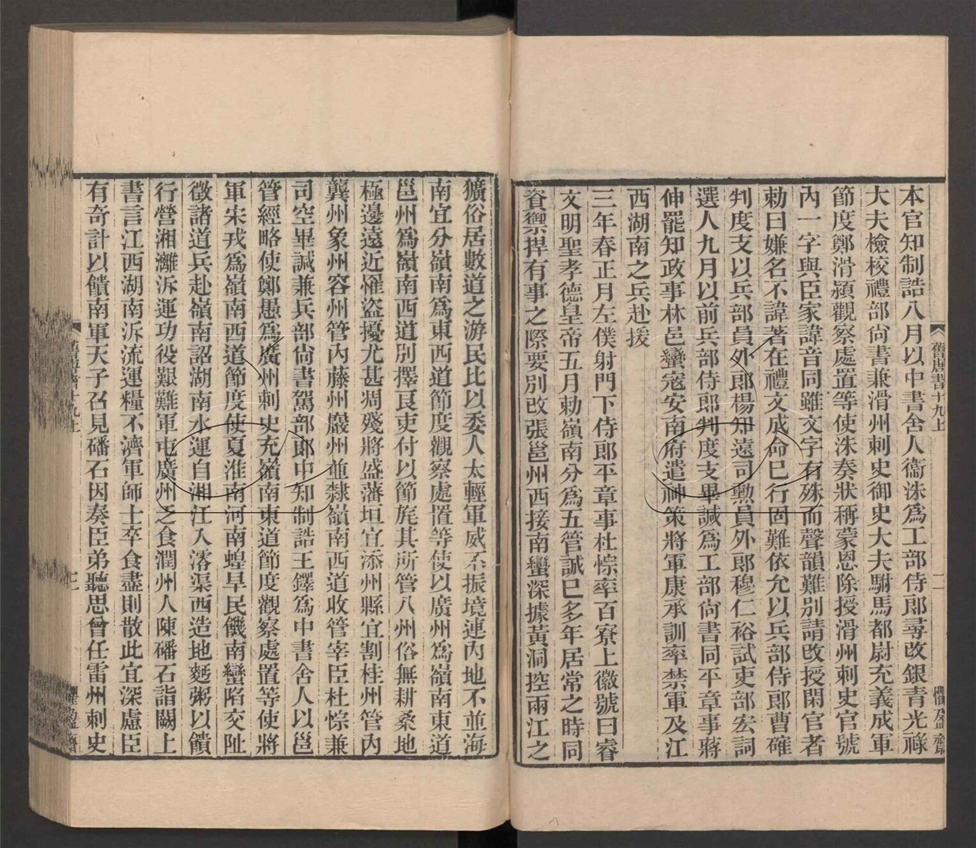 本官知制誥八月以中書舍人衞洙爲工部侍郎尋改銀青光祿
大夫檢校禮部尚書兼滑州刺史御史大夫駙馬都尉充義成軍
節度鄭滑潁觀察處置等使洙奏狀稱蒙恩除授滑州刺史官號
內一字與臣家諱音同雖文字有殊而聲韻難別請改授閑官者
勅曰嫌名不諱著在禮文成命已行固難依允以兵部侍郎曹確
判度支以兵部員外郎楊知遠司勲員外郎穆仁裕試吏部宏詞
選人九月以前兵部侍郎判度支畢諴爲工部尚書同平章事蔣
伸罷知政事林邑蠻寇安南府遣神策將軍康承訓率禁軍及江
西湖南之兵赴援
三年春正月左僕射門下侍郎平章事杜悰率百寮上徽號曰睿
文明聖孝德皇帝五月勅嶺南分爲五管誠已多年居常之時同
資禦捍有事之際要別改張邕州西接南蠻深據黃洞控兩江之
獷俗居數道之游民比以委人太輕軍威不振境連內地不並海
南宜分嶺南爲東西道節度觀察處置等使以廣州爲嶺南東道
邕州爲嶺南西道別擇良吏付以節旄其所管八州俗無耕桑地
極邊遠近罹盜擾尤甚凋殘將盛藩垣宜添州縣宜割桂州管內
龔州象州容州管內藤州巖州並隸嶺南西道收管宰臣杜悰兼
司空畢諴兼兵部尚書駕部郎中知制誥王鐸爲中書舍人以邕
管經略使鄭愚爲廣州刺史充嶺南東道節度觀察處置等使將
軍宋戎爲嶺南西道節度使夏淮南河南蝗旱民饑南蠻陷交阯
徵諸道兵赴嶺南詔湖南水運自湘江入澪渠西造地麨粥以饋
行營湘灕泝運功役艱難軍屯廣州乏食潤州人陳磻石詣闕上
書言江西湖南泝流運糧不濟軍師士卒食盡則散此宜深慮臣
有奇計以饋南軍天子召見磻石因奏臣弟聽思曾任雷州刺史